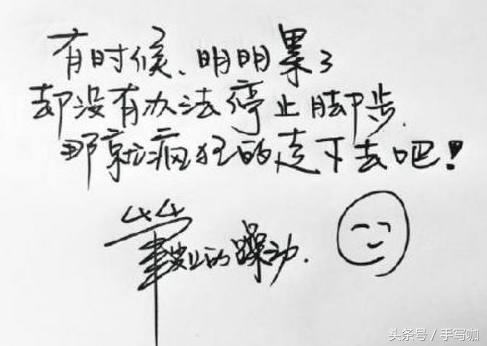 有时候、明明累了
却没有办法停止脚步.
那就疯狂的走下去吧!
的躁动.
头条号/手写咖